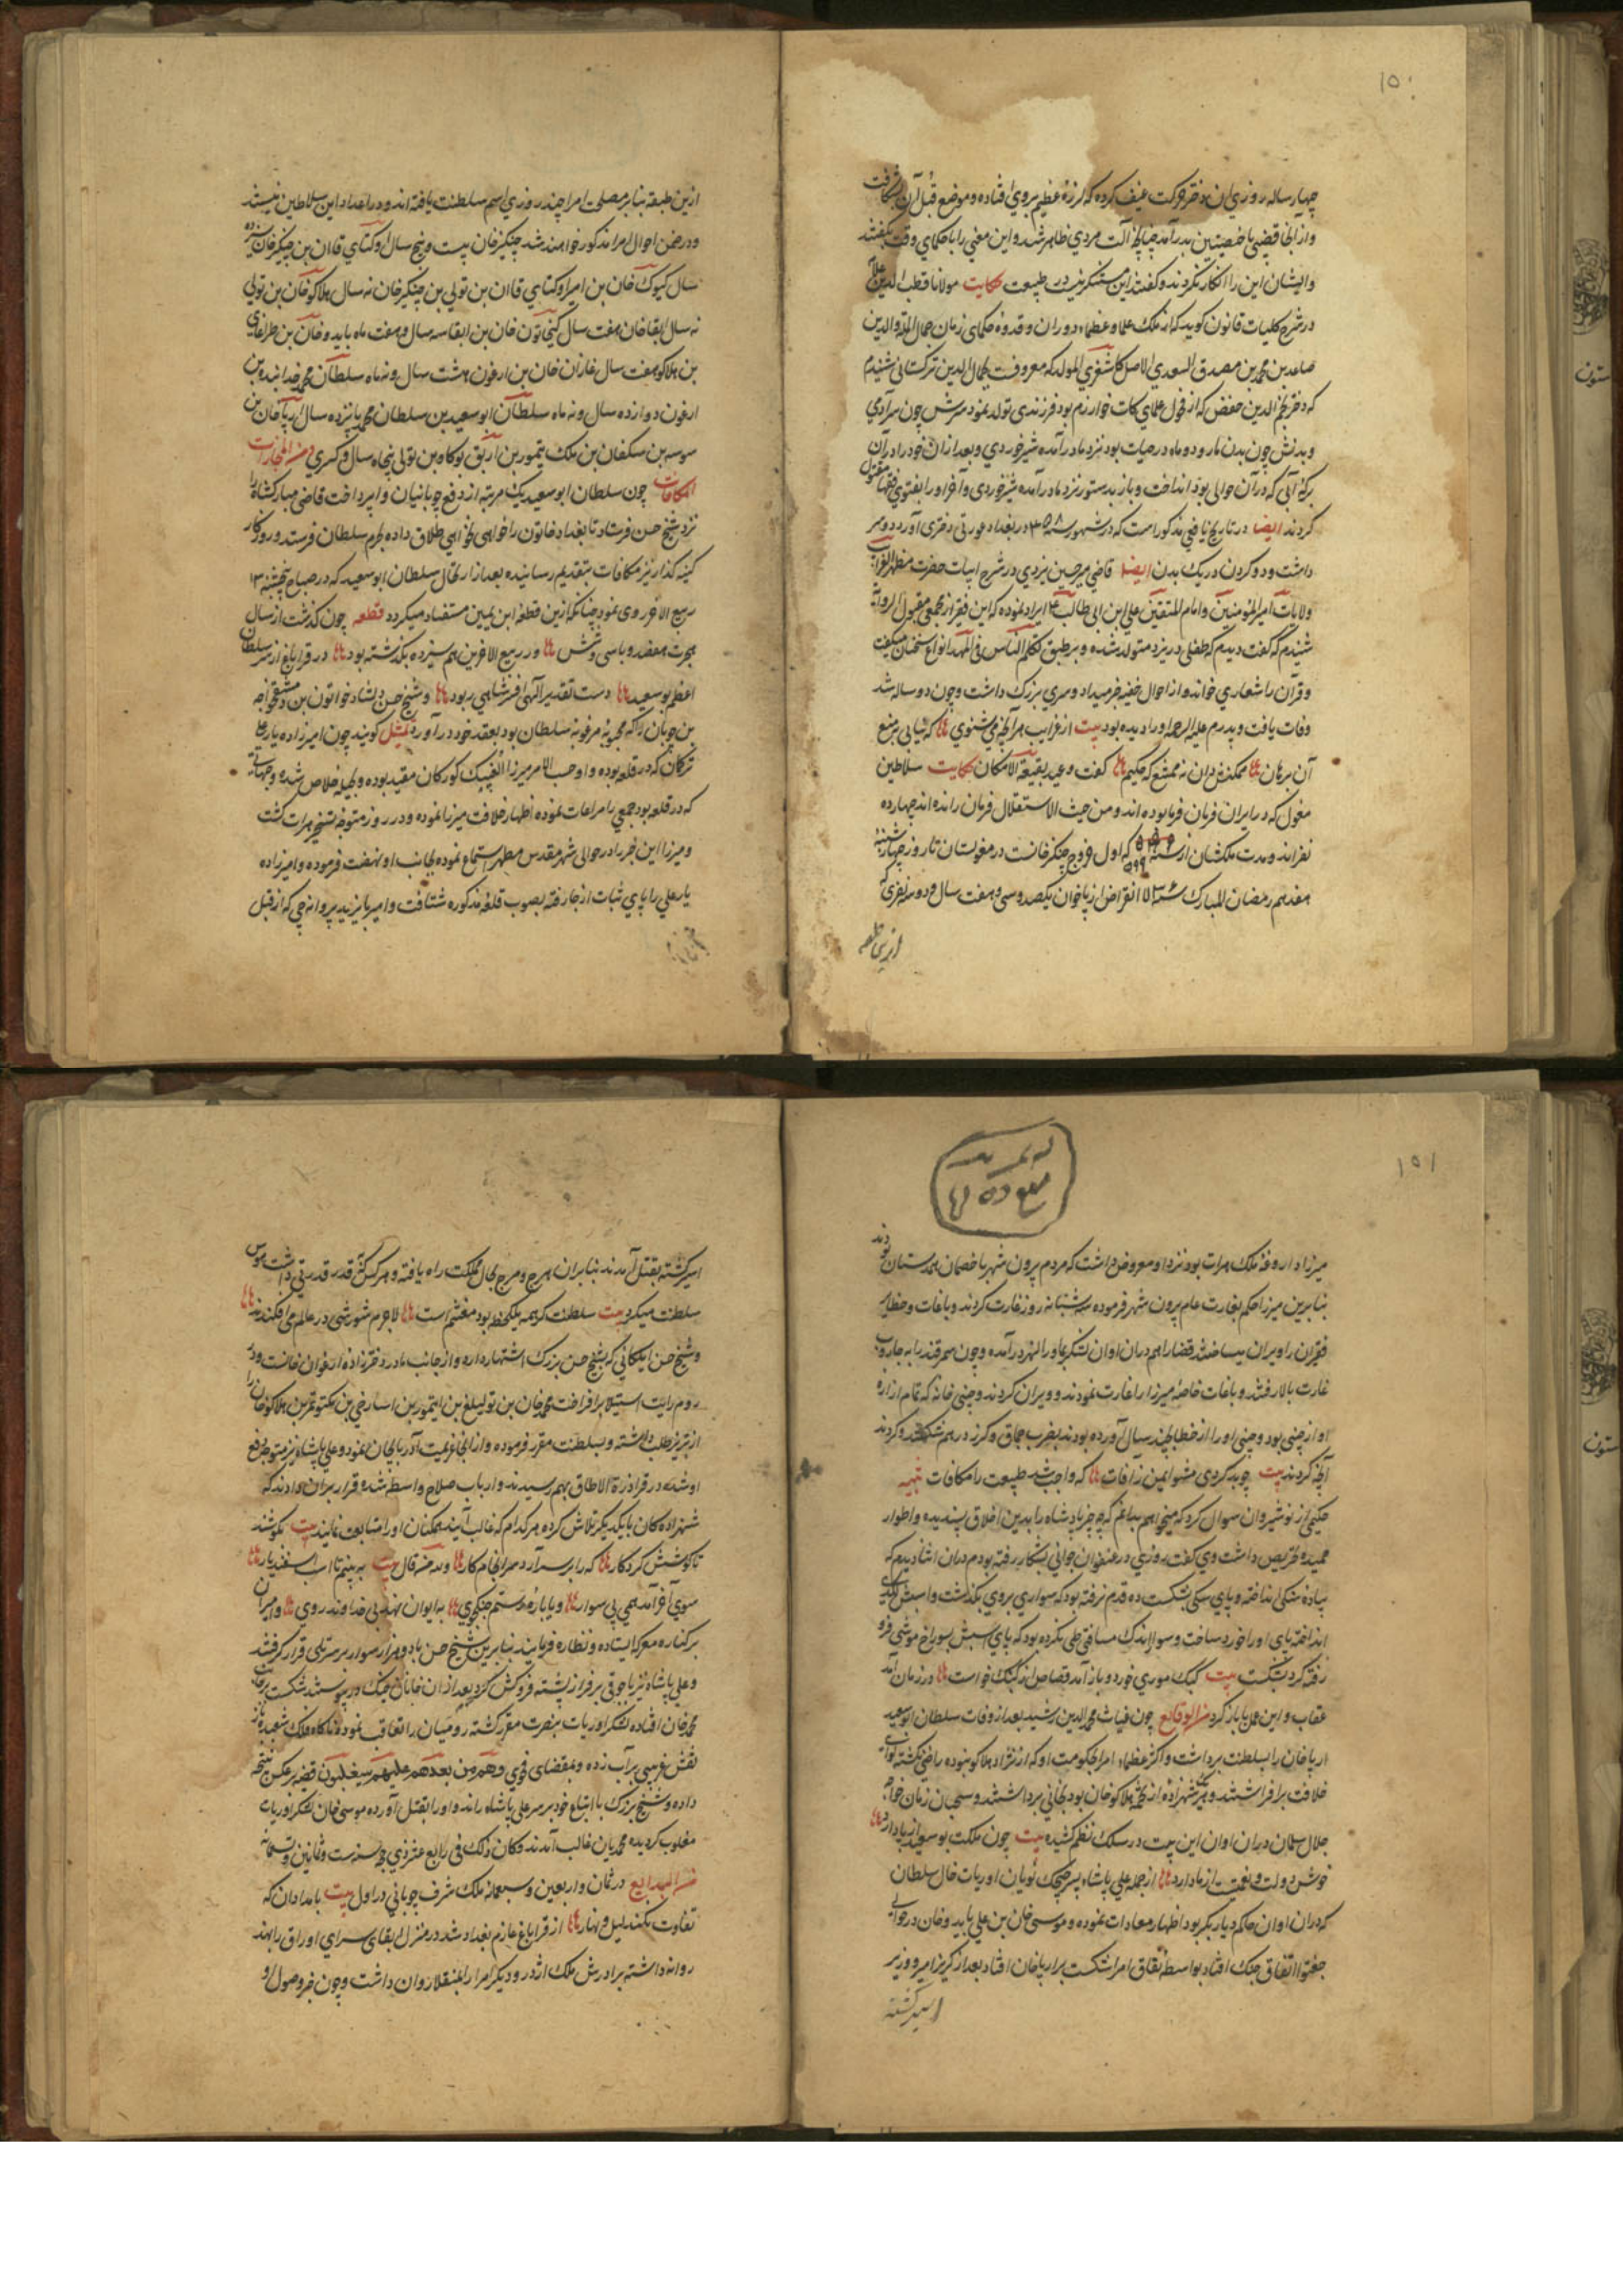 ۱۵۰
چهار ساله روزی ان دختر حرکت عنیف کرده که لرزهٔ عظیم بروی افتاده و موضع قبل آن بشکافت
و از آنجا قضیبی با خصیتین بدر آمد چنانچه آلت مردی ظاهر شد و این معنی را با حکمای وقت بگفتند
و ایشان این را انکار نکردند و گفتند این مستنکر نیست در طبیعت حکایت مولانا قطب الدین علامه
در شرح کلیات قانون گوید که از ملک علما و عظماء دوران و قدوهٔ حکمای زمان جمال الملة والدین
صاعد بن محمد بن مصدق السعدی الاصل کاشغری المولد که معروفست بجمال الدین ترکستانی شنیدم
که دختر نجم الدین حفض که از فحول علمای کات خوارزم بود فرزندی تولد نمود سرش چون سر آدمی
و بدنش چون بدن مار و دو ماه در حیات بود نزد مادر آمده شیر خوردی و بعد از ان خود را در آن
برکهٔ آبی که در آن حوالی بود انداخت و باز بدستور نزد مادر آمده شیر خوردی و آخر او را بفتوی فقها مقتول
کردند ایضا در تاریخ یافعی مذکور است که در شهور سنه ۴۵۸ در بغداد عورتی دختری آورد دو سر
داشت و دو گردن در یک بدن ایضا قاضی میر حسین یزدی در شرح ابیات حضرت مظهر الغرایب
ولایات امیر المؤمنین و امام المتقین علی ابن ابی طالب ع ایراد نموده که این فقیر از جمعی مقبول الروایة
شنیدم که گفت دیدم که طفلی در یزد متولد شده و بر طبق تکلم الناس فی المهد انواع سخنان میگفت
و قرآن را شعاری خواند و از احوال خفیه خبر میداد و سری بزرگ داشت و چون دو ساله شد
وفات یافت و پدرم علیه الرحمه او را دیده بود بیت از غرایب هر آنچه می شنوی ها که نیابی بر منع
آن برهان ها ممکنش دان نه ممتنع که حکیم ها گفت و عبد بقیعة الامکان حکایت سلاطین
مغول که در ایران فرمان فرما بوده اند و من حیث الاستقلال فرمان رانده اند چهارده
نفراند و مدت ملکشان از سنه ۵۹۹ که اول خروج چنکیز خانست در مغولستان تا روز چهارشنبه
هفدهم رمضان المبارک سنه ۷۳۶ انقراض ارپا خوان یکصد و سی و هفت سال و دو سه نفری که
ازین طبقه
ازین طبقه بنابر مصلحت امرا چند روزی اسم سلطنت یافته اند و در اعداد این سلاطین نیستند
و در ضمن احوال امرا مذکور خواهند شد چنکیز خان بیست و پنج سال اوکتای قاان بن چنکیز خان سیزده
سال کیوک خان بن امیر اوکتای قاان بن تولی بن چنکیز خان نه سال هلاکو خان بن تولی
نه سال ابقا خان هفت سال کیخاتون خان بن ابقا سه سال و هفت ماه بایدو خان بن طراغای
بن هلاکو هفت سال غازان خان بن ارغون هشت سال و نه ماه سلطان محمد خدابنده بن
ارغون دوازده سال و نه ماه سلطان ابو سعید بن سلطان محمد پانزده سال ارپا خان بن
سوسه بن سنکقان بن ملک تیمور بن اربق بوکاه بن تولی پنجاه سال و کسری من المجازات
المکافات چون سلطان ابو سعید یک مرتبه از دفع چوپانیان وا پرداخت قاضی مبارکشاه را
نزد شیخ حسن فرستاد تا بغداد خاتون را خواهی نخواهی طلاق داده بحرم سلطان فرستد و روزکار
کینه گذار نیز مکافات بتقدیم رسانیده بعد از ارتحال سلطان ابو سعید که در صباح پنجشنبه ۱۳
ربیع الاخر روی نمود چنانکه ازین قطعهٔ ابن یمین مستفاد میکردد قطعه چون گذشت از سال
هجرت هفصد و با سی و شش ها در ربیع الاخرین هم سیزده بگذشته بود ها در قراباغ از سر سلطان
اعظم بو سعید ها دست تقدیر الهی افسر شاهی ربود ها و شیخ حسن دلشاد خواتون بن دمشق خواجه
بن چوپان را که محبوبه مرغوبه سلطان بود بعقد خود در آورد تمثیل گویند چون امیر زاده یار علی
ترکان که در قلعه بوده و او حسب الامر میرزا الغ بیک کورکان مقید بوده و بحیله خلاص شده و جهانی
که در قلعه بود جمعی را مراعات نموده اظهار خلافت میرزا نموده و در روز متوجه تسخیر هرات کشت
و میرزا این خبر را در حوالی شهر مقدس مطهر استماع نموده بجانب او نهضت فرموده و امیرزاده
یار علی را پای ثبات از جا رفته بصوب قلعهٔ مذکوره شتافت و امیر بایزید پروانه چی که از قبل
۱۵۱
میرزا داروغهٔ ملک هرات بود نزد او معروض داشت که مردم بیرون شهر با خصمان همدستان بودند
بنا برین میرزا حکم بغارت عام بیرون شهر فرموده سه شبانه روز غارت کردند و باغات و حظایر
فقیران را ویران میساختند قضا را هم دران اوان لشکر بماوراء النهر در آمده و چون سمرقند را به جاروب
غارت بالا رفتند و باغات خاصهٔ میرزا را غارت نمودند و ویران کردند و چینی خانه که تمام ازارهٔ
او از چینی بود و چینی او را از خطا بچند سال آورده بودند بضرب چماق و گرز در هم شکستند و کردند
آنچه کردند بیت چو بد کردی مشو ایمن ز آفات ها که واجب شد طبیعت را مکافات تنبیه
حکیمی از نوشیروان سوال کرد که میخواهم بدانم که چه چیز پادشاه را بدین اخلاق پسندیده و اطوار
حمیده تحریص داشت وی گفت روزی در عنفوان جوانی بشکار رفته بودم دران اثنا دیدم که
پیادهٔ سنگی انداخته و پای سکی بشکست ده قدم نرفته بود که سواری بروی بگذشت و اسبش لگدی
انداخته پای او را خورد ساخت و سوار اندک مسافتی طی نکرده بود که پای اسبش بسوراخ موشی فرو
رفته گرد بشکست بیت کبک موری خورد و باز آمد قصاص از کبک خواست ها ور زمان آمد
عقاب و این عمل با باز کرد من الوقایع چون غیاث محمد الدین رشید بعد از وفات سلطان ابو سعید
ارپا خان را بسلطنت برداشت و اکثر عظماء امرا بحکومت او که از نژاد هلاکو نبوده راضی نکشته لوای
خلافت بر افراشتند و هر شهزاده از تخمهٔ هلاکو خان بود بخانی برداشتند و سحبان زمان خواجه
جلال سلمان دران اوان این بیت در سلک نظم کشیده بیت چون ملکت بو سعید از پا دارد ها
خوش دولت و نعمت از پا دارد ها از جمله علی پادشاه پسر جیچک نویان اویرات خال سلطان
که دران اوان حاکم دیار بکر بود اظهار معادات نموده و موسی خان بن علی بایدو خان در حوالی
جغتو اتفاق جنک افتاد بواسطه نفاق امرا شکست بر ارپا خان افتاد بعد از گریز امیر و وزیر
اسیر گشته
اسیر گشته بقتل آمدند بنا بران هرج و مرج بحال مملکت راه یافته و هر کس که قدر قدرتی داشت هوس
سلطنت میکرد بیت سلطنت گر همه یکلحظه بود مغتنم است ها لاجرم شورشی در عالم می افکندند ها
و شیخ حسن ایلکانی که بشیخ حسن بزرگ اشتهار دارد و از جانب مادر دختر زادهٔ ارغوان خانست در
روم رایت استیلا برافراخت محمد خان بن
از تبریز طلب داشته و بسلطنت مقرر فرموده و از آنجا عزیمت آذربایجان نمود و علی پاشاه نیز متوجه دفع
او شد در قرا درهٔ الاطاق بهم رسیدند و ارباب صلاح واسطه شده قرار بران دادند که
شهزاده کان با یکدیگر تلاش کرده هر کدام که غالب آیند همکنان او را متابعت نمایند بیت بکوشند
تا کوشش کردکار ها که را بر سر آرد سرانجام کار ها ولله من قال بیت به بینیم تا اسب اسفندیار ها
سوی آخر آید همی بی سوار ها و یا بارهٔ رستم جنکجوی ها به ایوان نهد بی خداوند روی ها و امیران
بر کناره معرکه ایستاده و نظاره فرمایند بنا برین شیخ حسن با دو هزار سوار بر سر تلی قرار گرفتند
و علی پاشاه نیز با جوقی بر فراز پشته فروکش کرد بعد از ان خانان جنک در پیوستند شکست بر جانب
محمد خان افتاده لشکر اویرات بنصرت مقرر گشته رومیان را تعاقب نموده ناگاه فلک شعبده باز
نقش غریبی بر آب زده و بمقتضای فحوی وهم من بعدهم علیهم سیغلبون قضیه بر عکس نتیجه
داده و شیخ بزرک با اتباع خود بر سر علی پاشاه راند و او را بقتل آورده موسی خان لشکر اویرات
مغلوب گردیده محمدیان غالب آمدند و کان ذلک فی رابع عشر ذی حجه سنه ست و ثلاثین و سبعمائه
من البدایع در ثمان و اربعین و سبعمائه ملک اشرف چوپانی در اول بیت بامدادان که
تفاوت نکند لیل و نهار ها از قراباغ عازم بغداد شد در منزل ابقای سرای اوراق را بهند
روانه داشته برادرش ملک اژدر و دیگر امرا را بمنقلا روان داشت و چون خبر وصول او